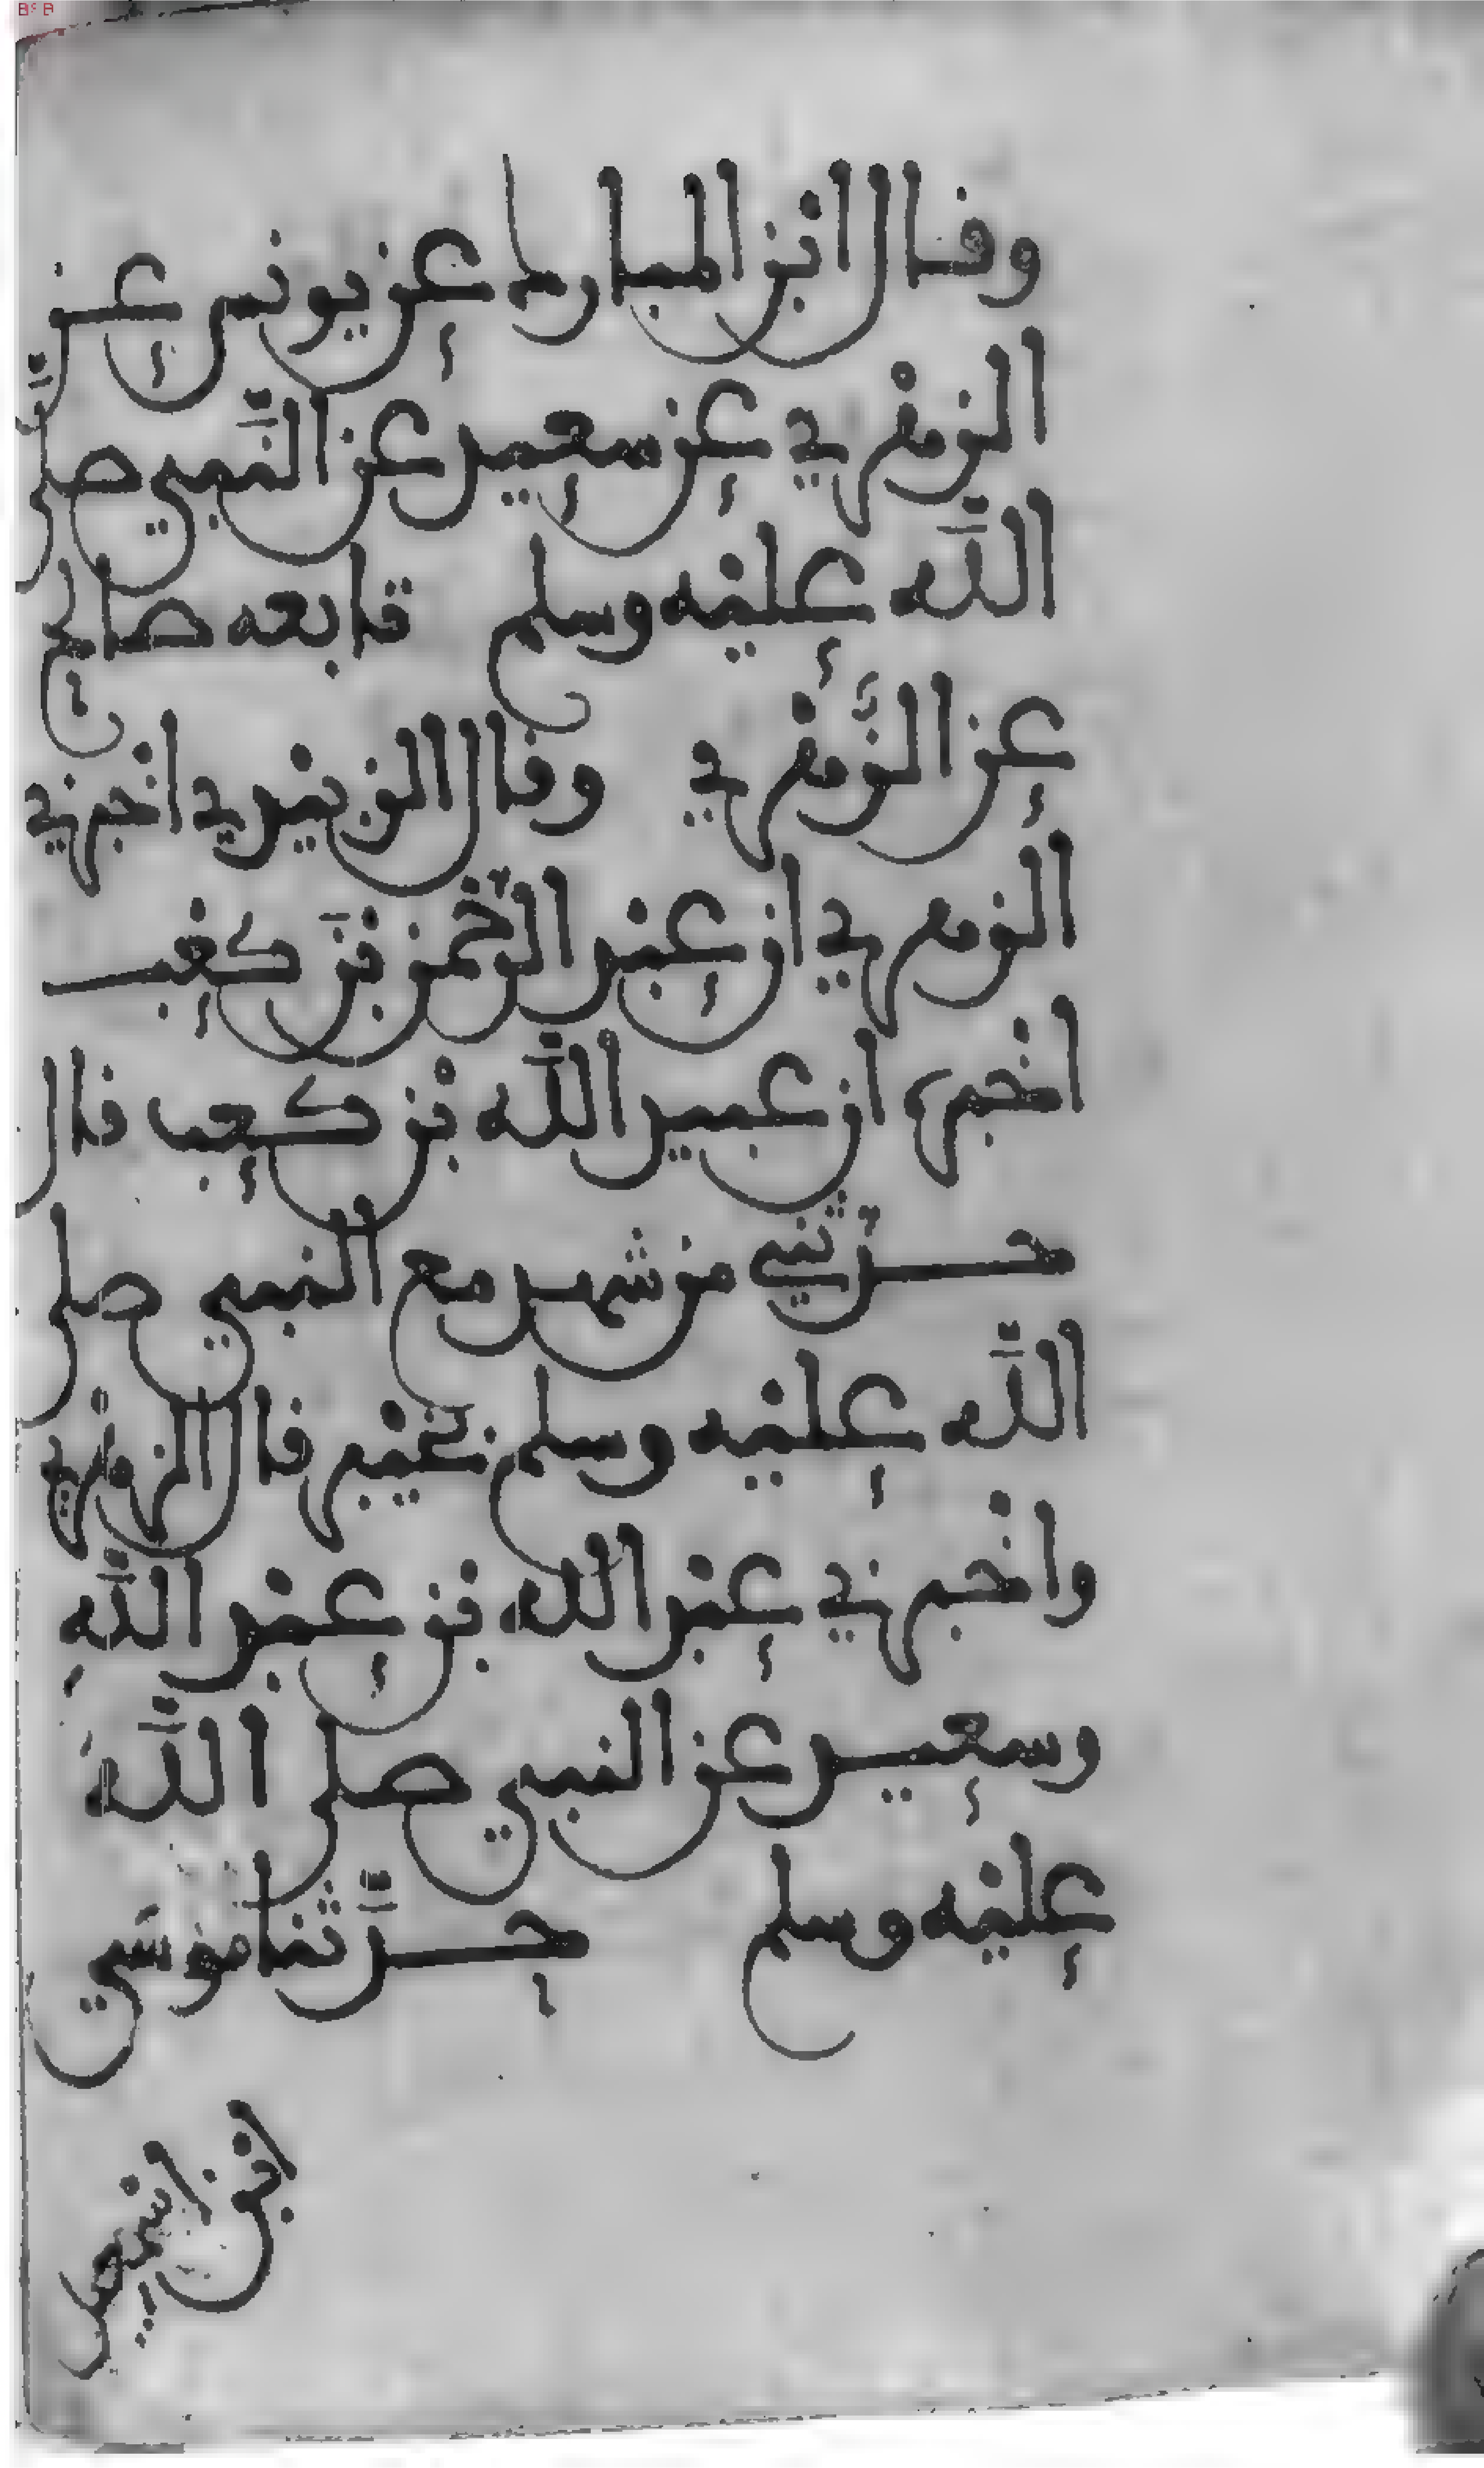 وقال ابن المبارك عن يونس عن
الزهري عن سعيد عن النبي صلى
الله عليه وسلم تابعه صالح
عن الزهري وقال الزبيدي اخبرني
الزهري ان عبد الرحمن بن كعب
اخبره ان عبيد الله بن كعب قال
حدثني من شهد مع النبي صلى
الله عليه وسلم بخيبر قال الزهري
واخبرني عبد الله بن عبد الله
وسعيد عن النبي صلى الله
عليه وسلم حدثنا موسى
ابن اسمعيل